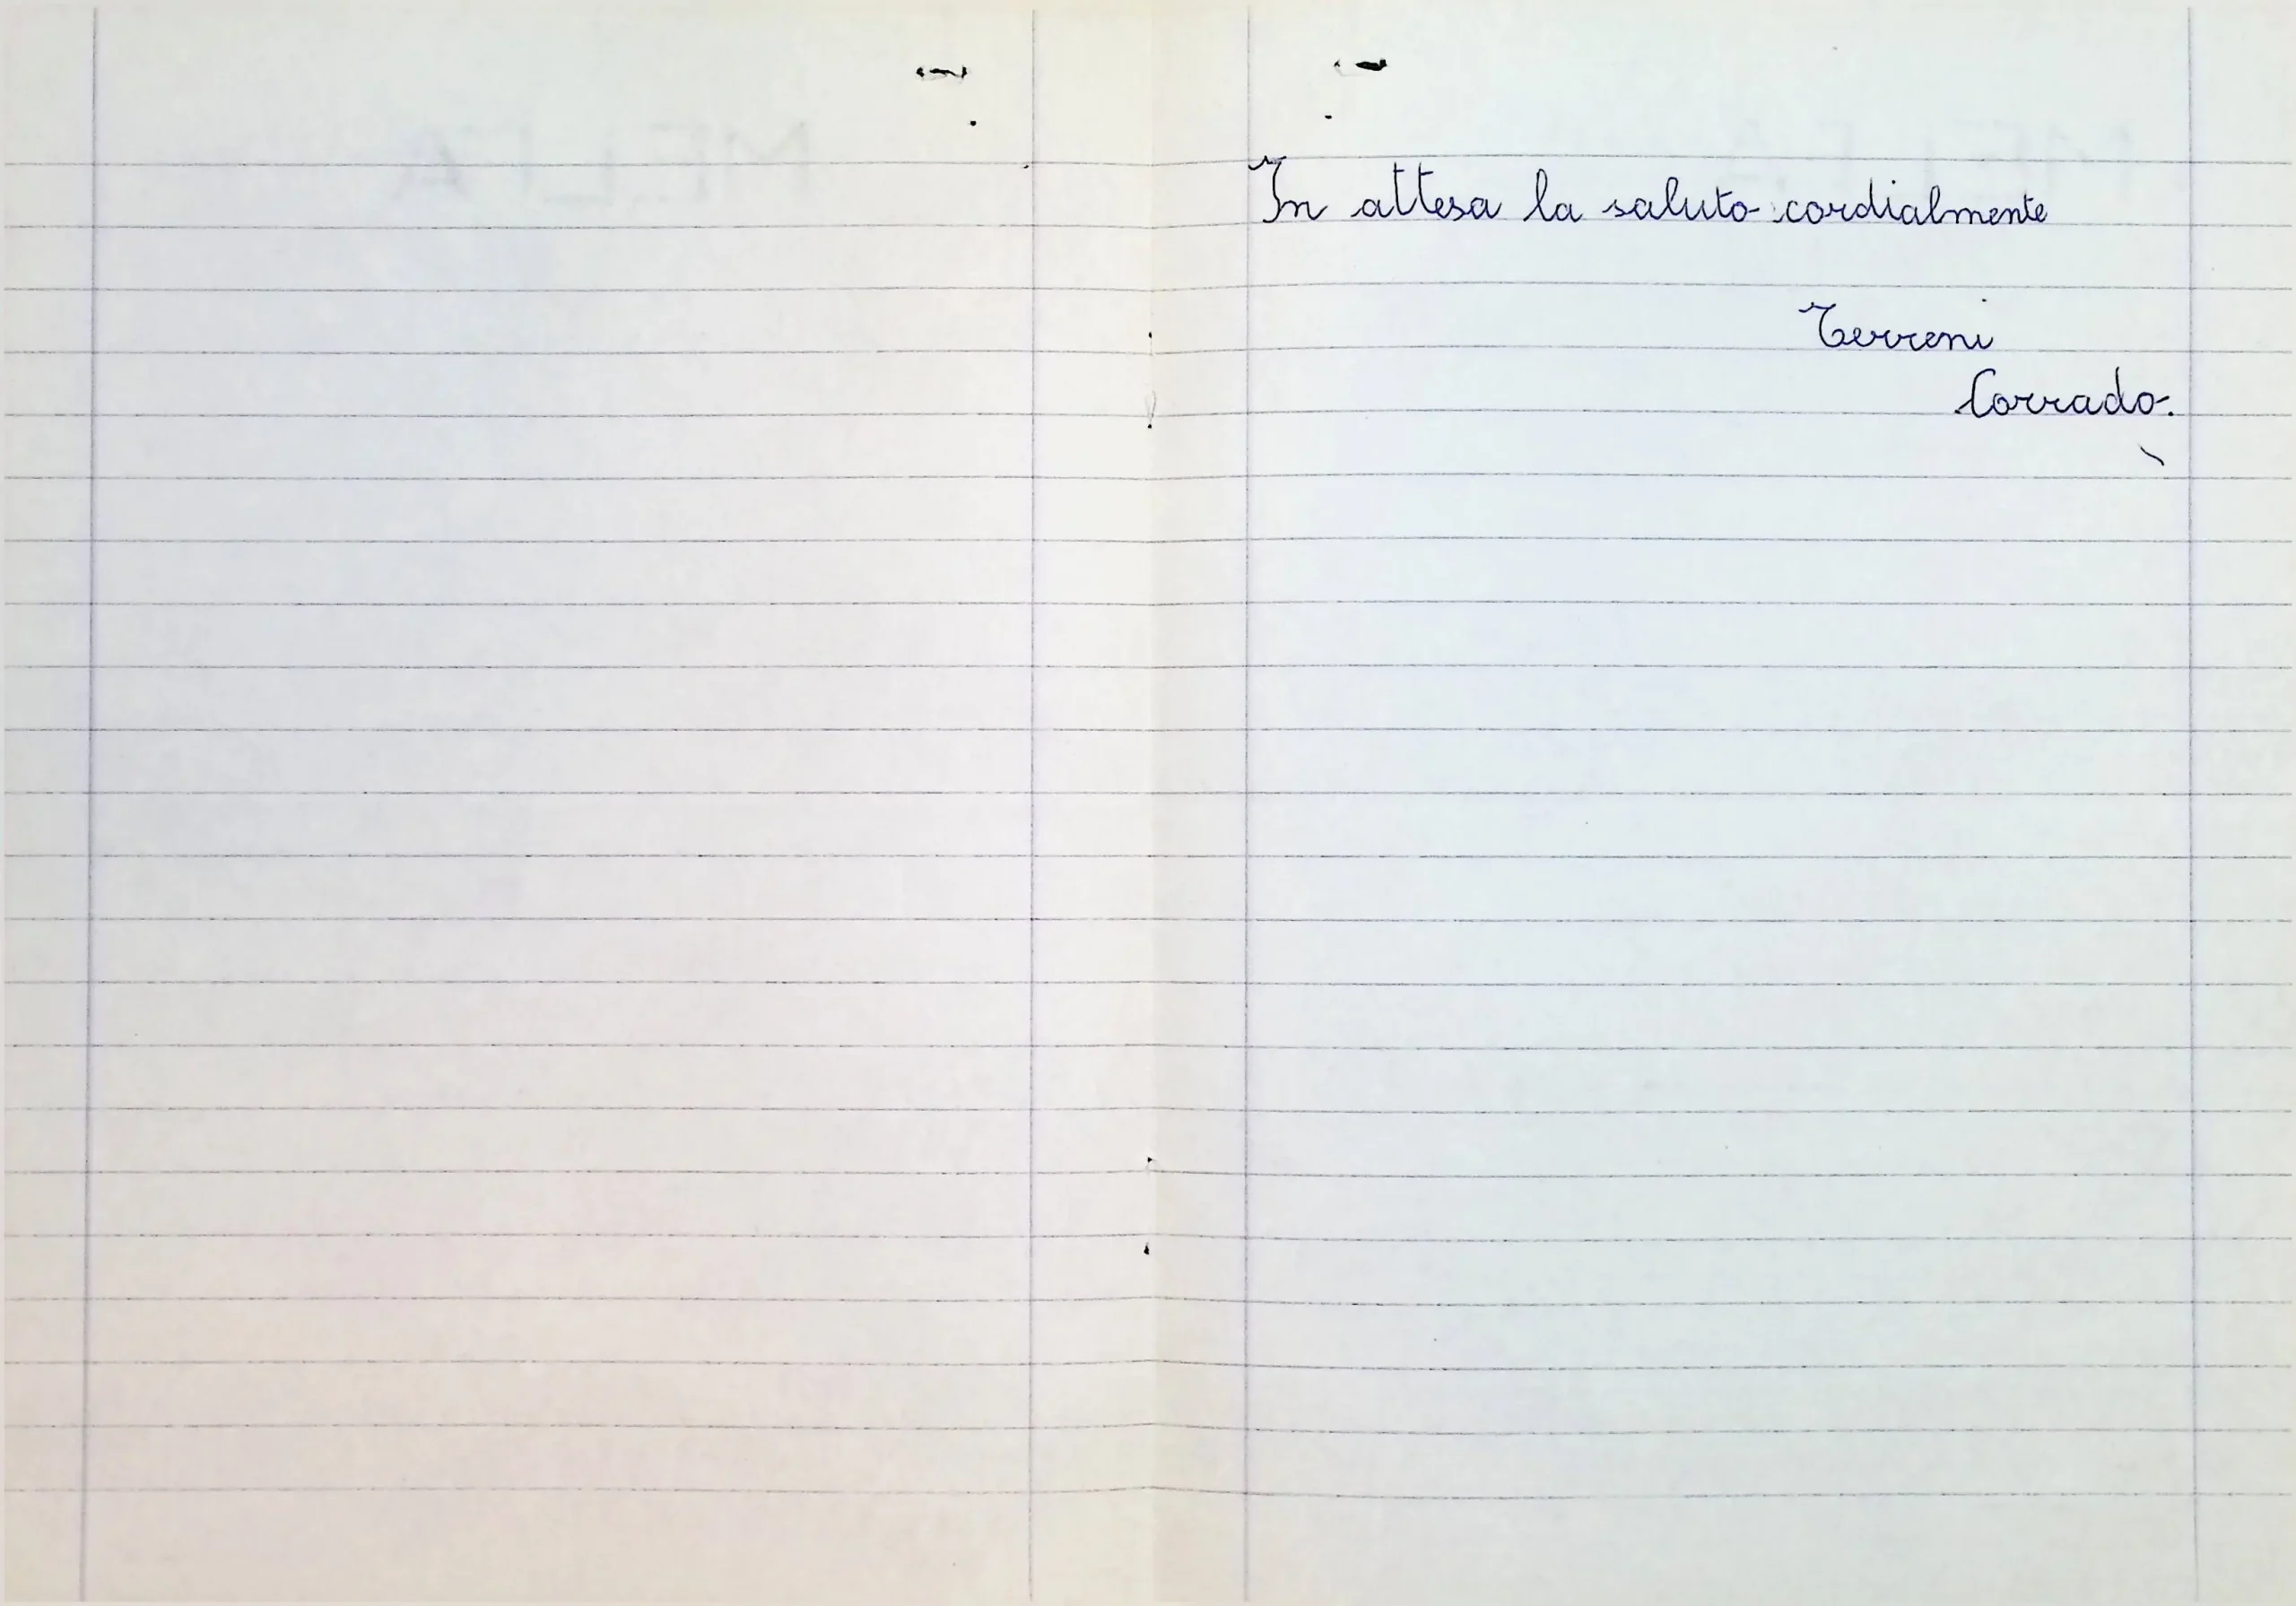 In attesa la saluto cordialmente
Terreni
Corrado.